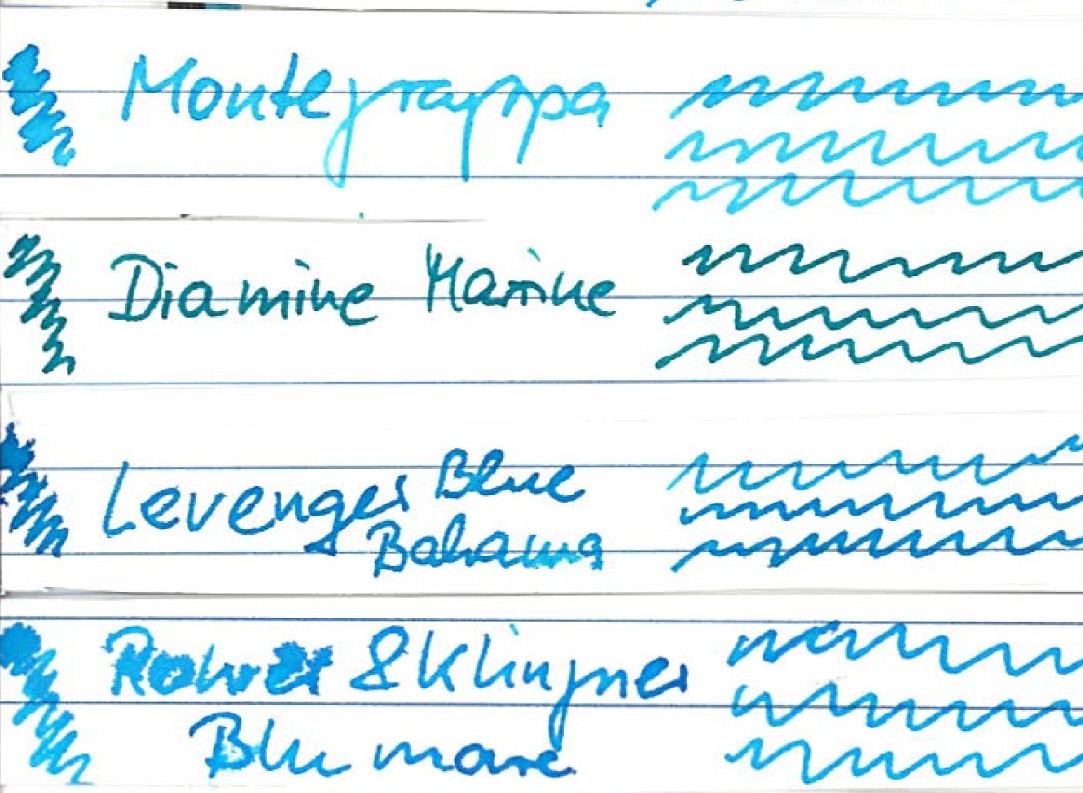 Montegrappa
Diamine Marine
Levenger Blue
Bahama
Rohrer & Klingner
Blu mare